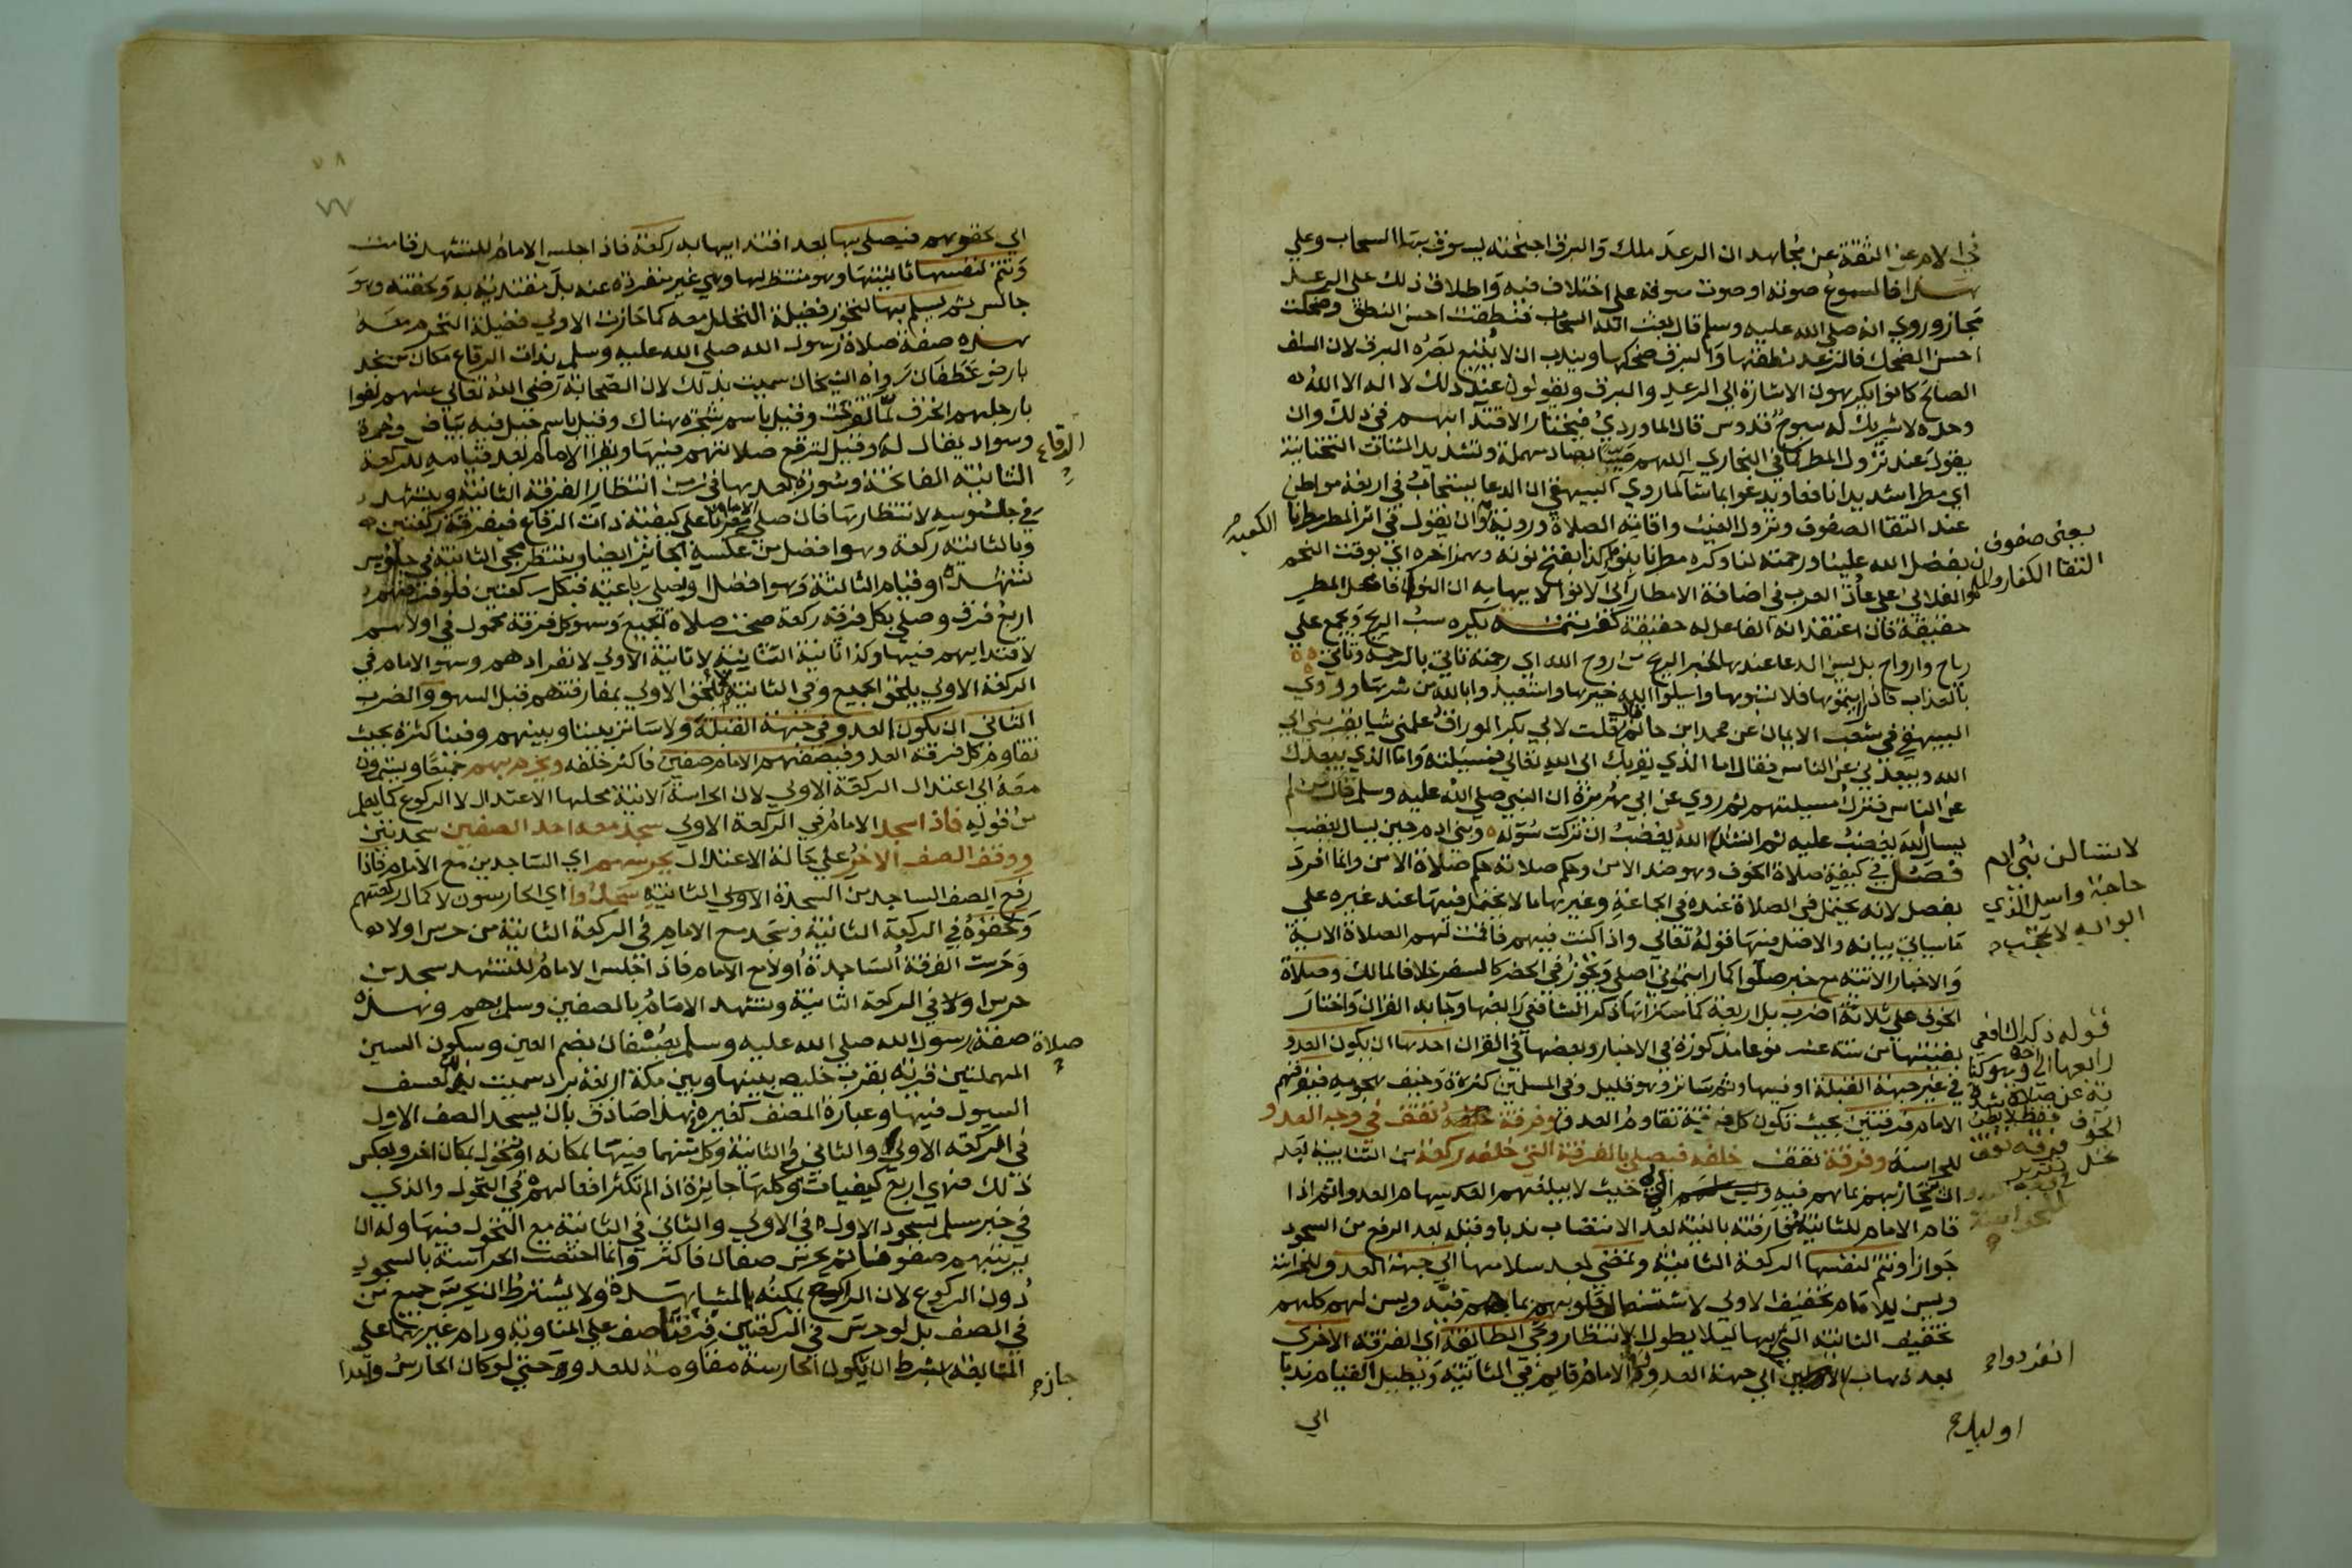 في الام عن الثقة عن مجاهد ان الرعد ملك والبرق اجنحته يسوق بها السحاب وعلي
هذا فالمسموع صوته او صوت سوقه علي اختلاف فيه واطلاق ذلك علي الرعد
مجاز وروي انه صلي الله عليه وسلم قال بعث الله السحاب فنطقت احسن النطق وضحكت
احسن الضحك فالرعد نطقها والبرق ضحكها ويندب ان لا يتبع بصره البرق لان السلف
الصالح كانوا يكرهون الاشارة الي الرعد والبرق ويقولون عند ذلك لا اله الا الله
وحده لا شريك له سبوح قدوس قال الماوردي فيختار الاقتدا بهم في ذلك وان
يقول عند نزول المطر كما في البخاري اللهم صيبا بصاد مهملة وتشديد المثناة التحتانية
اي مطرا شديدا نافعا ويدعوا بما شا لما روي البيهقي ان الدعا يستجاب في اربعة مواطن
عند التقا الصفوف ونزول الغيث واقامة الصلاة وروية وان يقول في اثر المطر مطرنا
بفضل الله علينا ورحمته لنا وكره مطرنا بنو كذا بفتح نونه وهمز اخره اي بوقت النجم
الفلاني علي عادة العرب في اضافة الامطار الي الانوا لايهامه ان النوء فاعل المطر
حقيقة فان اعتقد انه الفاعل له حقيقة كفر يكره سب الريح وتجمع علي
رياح وارواح بل يسن الدعا عندها لخبر الريح من روح الله اي رحمته تاتي بالرحمة وتاتي
بالعذاب فاذا رايتموها فلا تسبوها واسيلوا الله خيرها واستعيذوا بالله من شرها وروي
البيهقي في شعب الايمان عن محمد ابن حاتم قال قلت لابي بكر الوراق علمني شيا يقربني الي
الله ويبعدني عن الناس فقال اما الذي يقربك الي الله تعالي فمسيلته واما الذي يبعدك
عن الناس فترك مسيلتهم ثم روي عن ابي هريرة ان النبي صلي الله عليه وسلم قال من لم
يسال الله يغضب عليه ثم انشد الله يغضب ان تركت سؤله وبني ادم حين يسال يغضب
فصل في كيفية صلاة الخوف وهو ضد الامن وحكم صلاته حكم صلاة الامن وانما افرد
بفصل لانه يحتمل في الصلاة عنده في الجماعة وغيرها ما لا يحتمل فيها عند غيره علي
ما سياتي بيانه والاصل فيها قوله تعالي واذا كنت فيهم فاقمت لهم الصلاة الاية
والاخبار الاتية مع خبر صلوا كما رايتموني اصلي وتجوز في الحضر كالسفر خلافا لمالك وصلاة
الخوف علي ثلاثة اضرب بل اربعة كما ستراها ذكر الشافعي رابعها وجا به القران واختار
بقيتها من ستة عشر نوعا مذكورة في الاخبار وبعضها في القران احدها ان يكون العدو
في غير جهة القبلة او فيها وثم ساتر وهو قليل وفي المسلمين كثرة وخيف هجومه فيفرقهم
الامام فرقتين بحيث تكون كل فرقة تقاوم العدو وفرقة تقف في وجه العدو
للحراسة وفرقة تقف خلفه فيصلي بالفرقة التي خلفه ركعة من الثنائية بعد
ان ينحاز بهم فيه حيث لا يبلغهم العدو سهام العدو ثم اذا
قام الامام للثانية فارقته بالنية بعد الانتصاب ندبا وقبله بعد الرفع من السجود
جوازا وتتم لنفسها الركعة الثانية وتمضي بعد سلامها الي جهة العدو للحراسة
ويسن للامام تخفيف الاولي لاشتغال قلوبهم بما هم فيه ويسن لهم كلهم
تخفيف الثانية التي بها ليلا يطول الانتظار وتجي الطائفة اي الفرقة الاخري
بعد ذهاب الاولين الي جهة العدو والامام قايم في الثانية ويطيل القيام ندبا
الي
يعني صفوف
التقا الكفار وال
الكعبة
لا تسالن بني ادم
حاجة واسيل الذي
ابوابه لا تحجب
قوله ذكر الشافعي
رابعها
انفردوا
الي لحوقهم فيصلي بها بعد اقتدائها به ركعة فاذا جلس الامام للتشهد قامت
وتتم لنفسها ثانيتها وهو منتظر لها وهي غير منفردة عنه بل مقتدية به ولحقته وهو
جالس ثم يسلم بها لتحوز فضيلة التحلل معه كما حازت الاولي فضيلة التحرم معه
هذه صفة صلاة رسول الله صلي الله عليه وسلم بذات الرقاع مكان من نجد
بارض غطفان رواه الشيخان سميت بذلك لان الصحابة رضي الله تعالي عنهم لفوا
بارجلهم الخرق لما تقرحت وقيل باسم شجرة هناك وقيل باسم جبل فيه بياض وحمرة
وسواد يقال له وقيل لترقع صلاتهم فيها ويقرا الامام بعد قيامه للركعة
الرقاع
الثانية الفاتحة وسورة بعدها في زمن انتظار الفرقة الثانية ويتشهد
في جلوسه لانتظارها فان صلي مغربا علي كيفية ذات الرقاع فبفرقة ركعتين
وبالثانية ركعة وهو افضل من عكسه الجائز ايضا وينتظر مجي الثانية في جلوس
تشهده او قيام الثالثة وهو افضل او صلي رباعية فبكل ركعتين فلو فرقهم
اربع فرق وصلي بكل فرقة ركعة صحت صلاة الجميع وسهو كل فرقة محمول في اولاهم
لاقتدايهم فيها وكذا ثانية الثانية لا ثانية الاولي لانفرادهم وسهو الامام في
الركعة الاولي يلحق الجميع وفي الثانية لا يلحق الاولي لمفارقتهم قبل السهو والضرب
الثاني ان يكون العدو في جهة القبلة ولا ساتر بيننا وبينهم وفينا كثرة بحيث
تقاوم كل فرقة العدو فيصفهم الامام صفين فاكثر خلفه ويحرم بهم جميعا ويستمرون
معه الي اعتدال الركعة الاولي لان الحراسة الاتية محلها الاعتدال لا الركوع كما يعلم
من قوله فاذا سجد الامام في الركعة الاولي سجد معه احد الصفين سجدتين
ووقف الصف الاخر علي حالة الاعتدال يحرسهم اي الساجدين مع الامام فاذا
رفع الصف الساجد من السجدة الاولي الثانية سجدوا اي الحارسون لاكمال ركعتهم
ولحقوه في الركعة الثانية وسجد مع الامام في الركعة الثانية من حرس اولا
وحرست الفرقة الساجدة اولا مع الامام فاذا جلس الامام للتشهد سجد من
حرس اولا في الركعة الثانية وتشهد الامام بالصفين وسلم بهم وهذه
صلاة
صفة رسول الله صلي الله عليه وسلم بعسفان بضم العين وسكون السين
المهملتين قرية بقرب خليص بينها وبين مكة اربعة برد سميت لعسف
السيول فيها وعبارة المصنف كغيره بهذا صادق بان يسجد الصف الاول
في الركعة الاولي والثاني في الثانية وكل منهما فيها بمكانه او تحول بمكان اخر وبعكس
ذلك فهي اربع كيفيات وكلها جايزة اذا لم تكثر افعالهم في التحول والذي
في خبر مسلم سجود الاول في الاولي والثاني في الثانية مع التحول فيها وله ان
يرتبهم صفوفا ثم يحرس صفان فاكثر وانما اختصت الحراسة بالسجود
دون الركوع لان الراكع يمكنه المشاهدة ولا يشترط ان يحرس جميع من
في الصف بل لو حرس في الركعتين فرقتا صف علي المناوبة ودام غيرهما علي
المتابعة بشرط ان تكون الحارسة مقاومة للعدو حتي لو كان الحارس واحدا
جاز